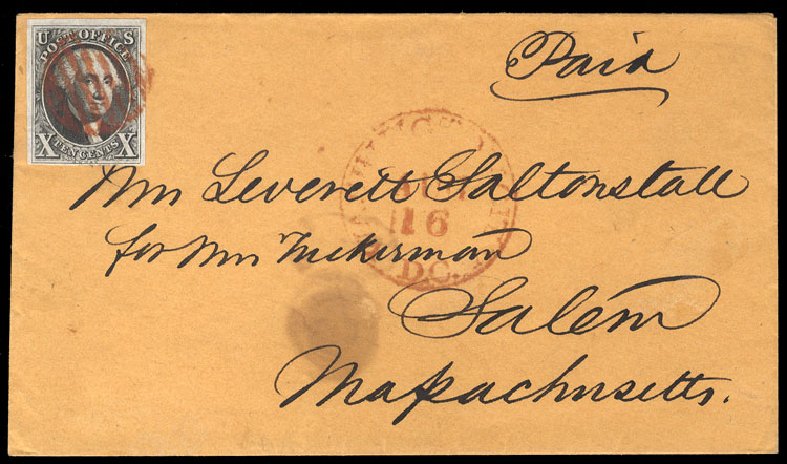 U S
POST OFFICE
X TEN CENTS X
Paid
WASHINGTON CITY
16
D.C.
Mrs Leverett Saltonstall
for Mrs Tuckerman
Salem
Massachusetts.